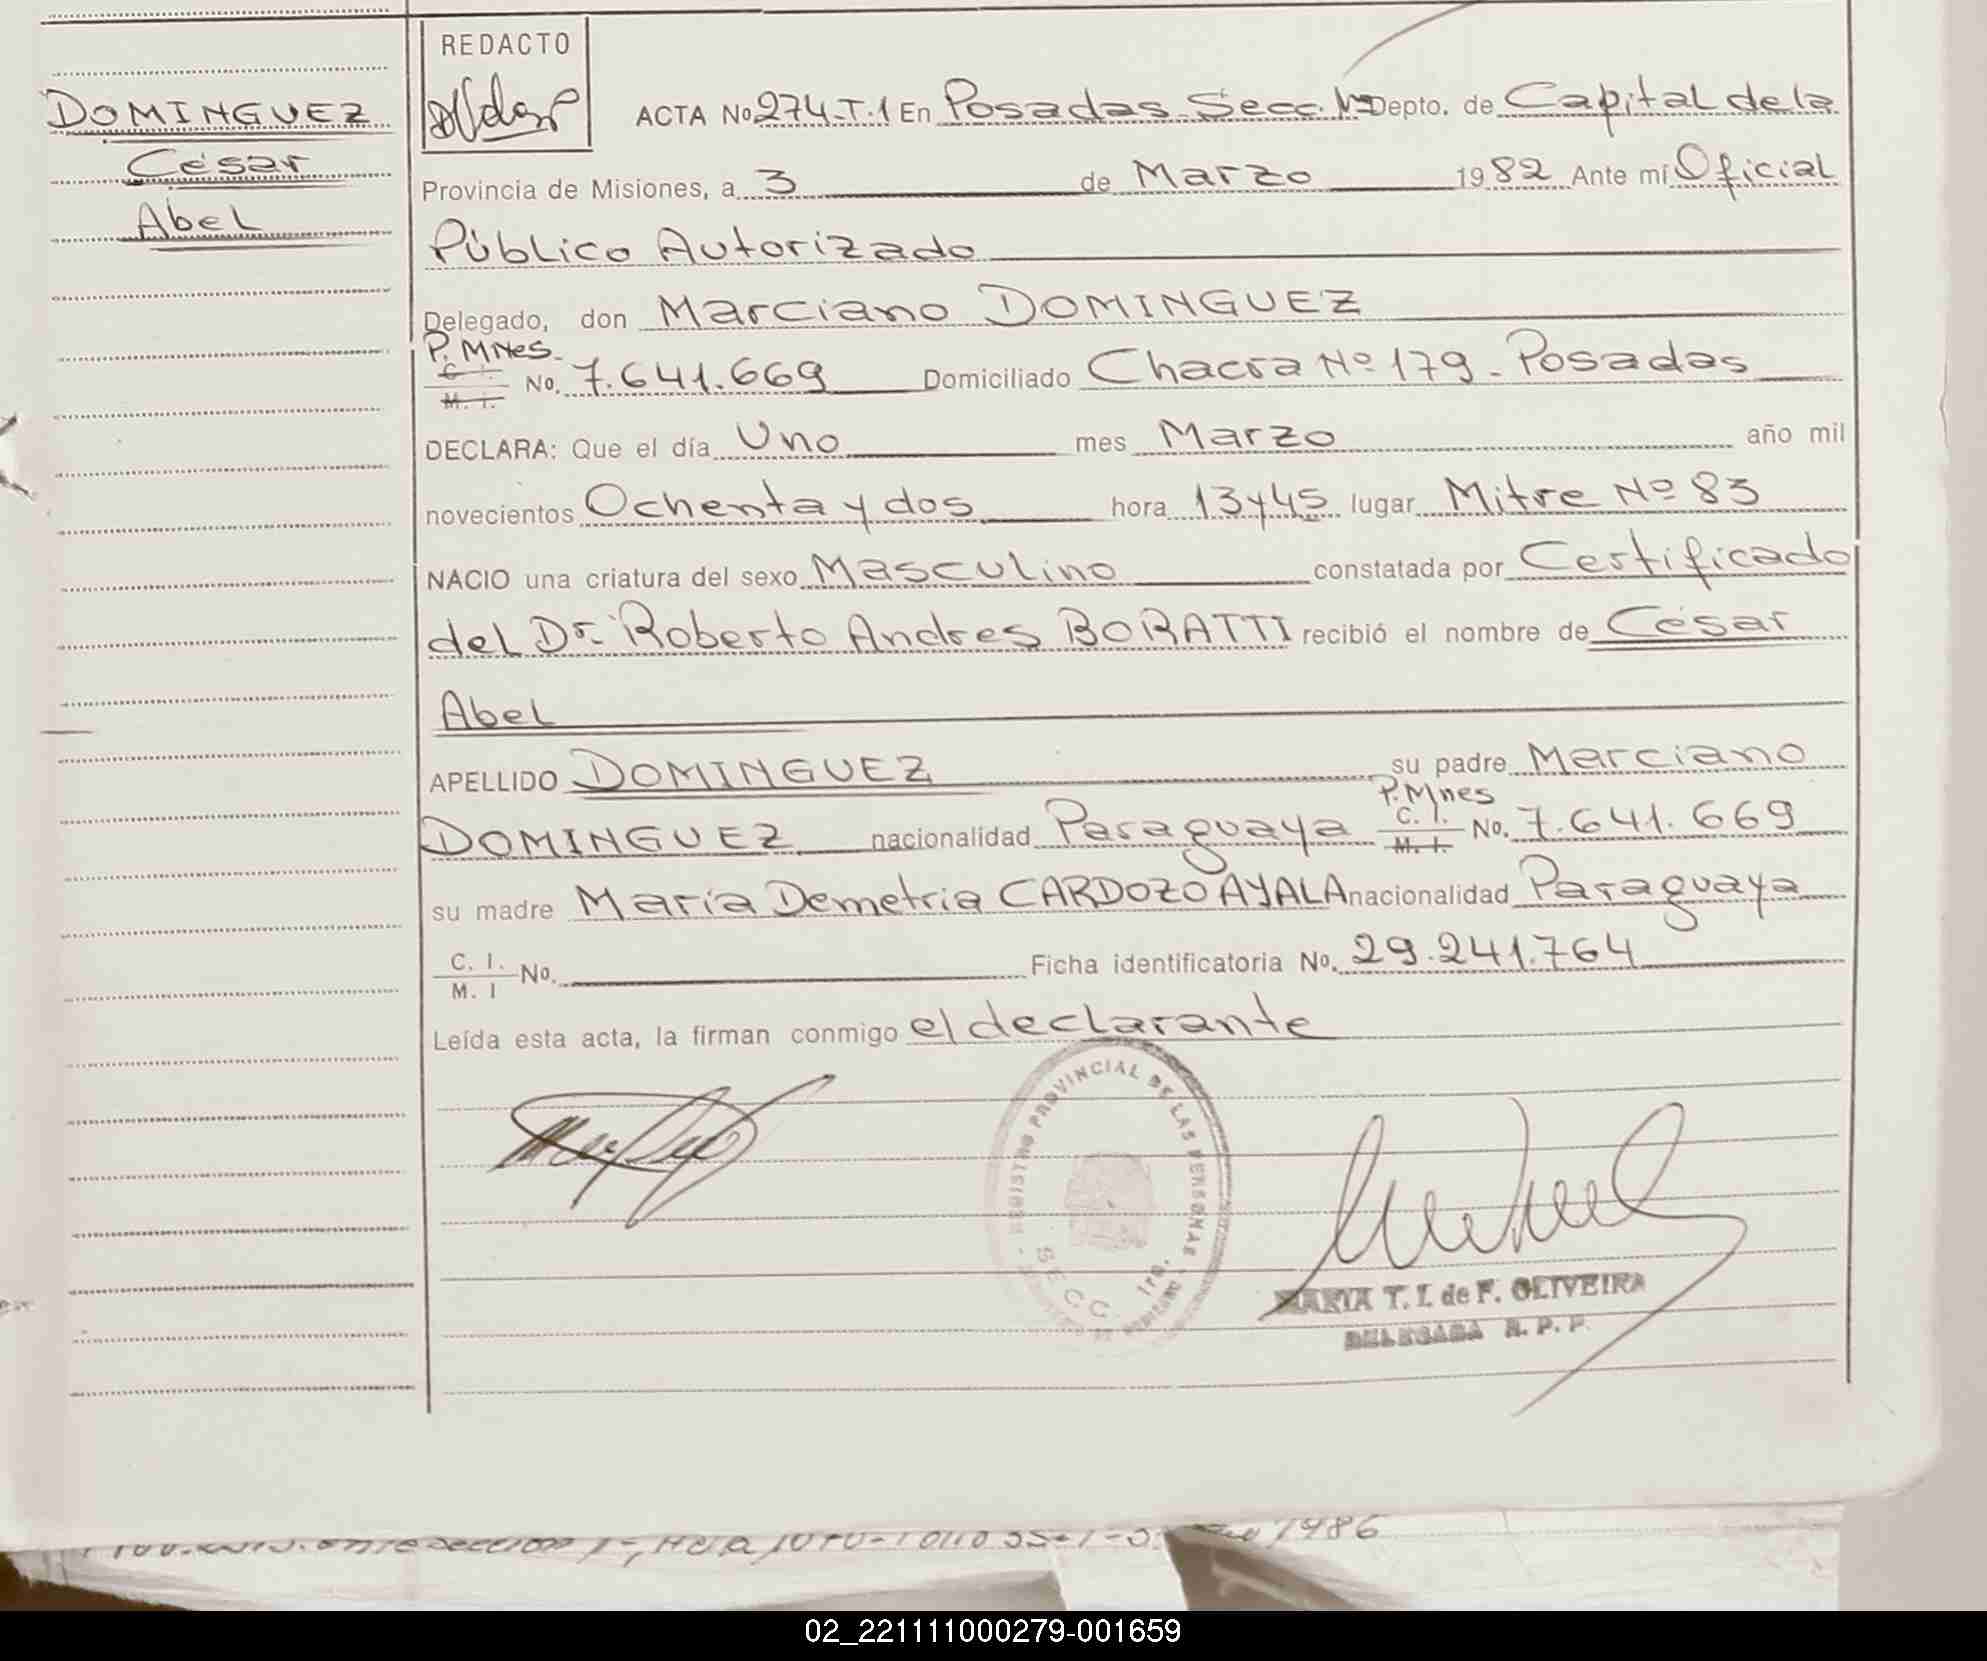 REDACTO
DOMINGUEZ
César
Abel
ACTA No 274-T.1 En Posadas Secc. 1ra Depto. de Capital de la
Provincia de Misiones, a 3 de Marzo 1982 Ante mí Oficial
Público Autorizado
Delegado, don Marciano DOMINGUEZ
P. Mnes.
C. I.
M. I. No. 7.641.669 Domiciliado Chacra Nº 179 - Posadas
DECLARA: Que el día Uno mes Marzo año mil
novecientos Ochenta y dos hora 13 y 45 lugar Mitre Nº 83
NACIO una criatura del sexo Masculino constatada por Certificado
del Dr. Roberto Andres BORATTI recibió el nombre de César
Abel
APELLIDO DOMINGUEZ su padre Marciano
P. Mnes
DOMINGUEZ nacionalidad Paraguaya C. I. M. I. No. 7.641.669
su madre María Demetria CARDOZO AYALA nacionalidad Paraguaya
C. I.
M. I No. Ficha identificatoria No. 29.241.764
Leída esta acta, la firman conmigo el declarante
REGISTRO PROVINCIAL DE LAS PERSONAS
SECC. 1ra.
MARIA T. I. de F. OLIVEIRA
DELEGADA R. P. P.
1986
02_221111000279-001659